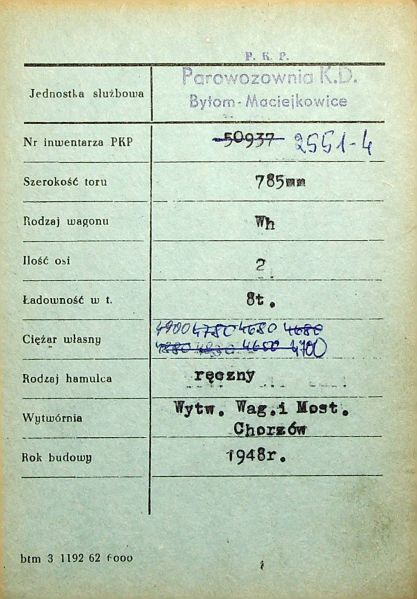 P. K. P.
Jednostka służbowa Parowozownia K.D.
Bytom-Maciejkowice
Nr inwentarza PKP 50937 2551-4
Szerokość toru 785mm
Rodzaj wagonu Wh
Ilość osi 2
Ładowność w t. 8t.
4900 4780 4680 4680
Ciężar własny 4880 4830 4650 4700
Rodzaj hamulca ręczny
Wytwórnia Wytw. Wag.i Most.
Chorzów
Rok budowy 1948r.
btm 3 1192 62 6000